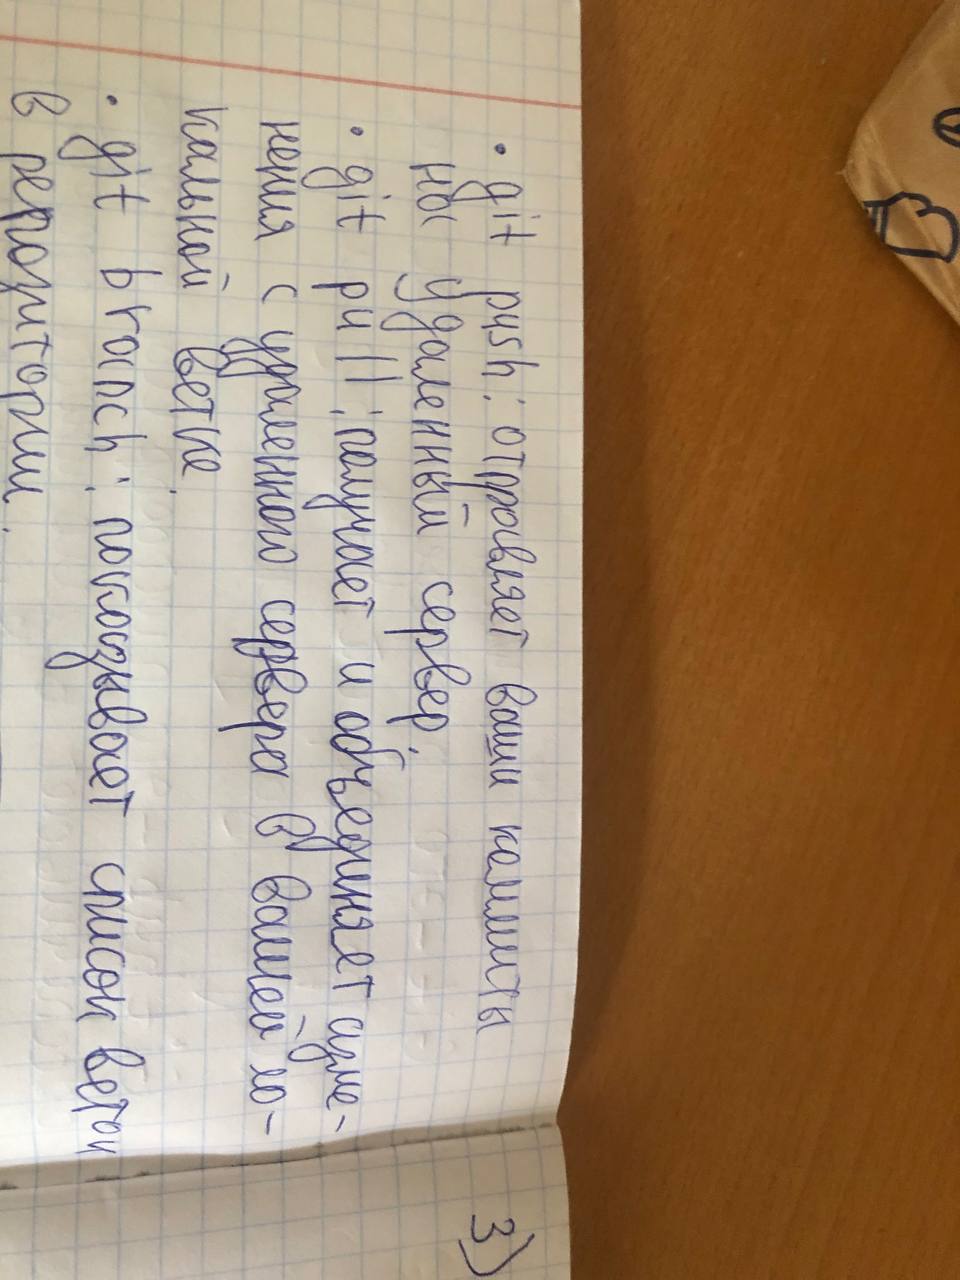 • git push: отправляет ваши коммиты
на удаленный сервер.
• git pull: получает и объединяет изме-
нения с удаленного сервера в вашей ло-
кальной ветке.
• git branch: показывает список веток
в репозитории.
3)